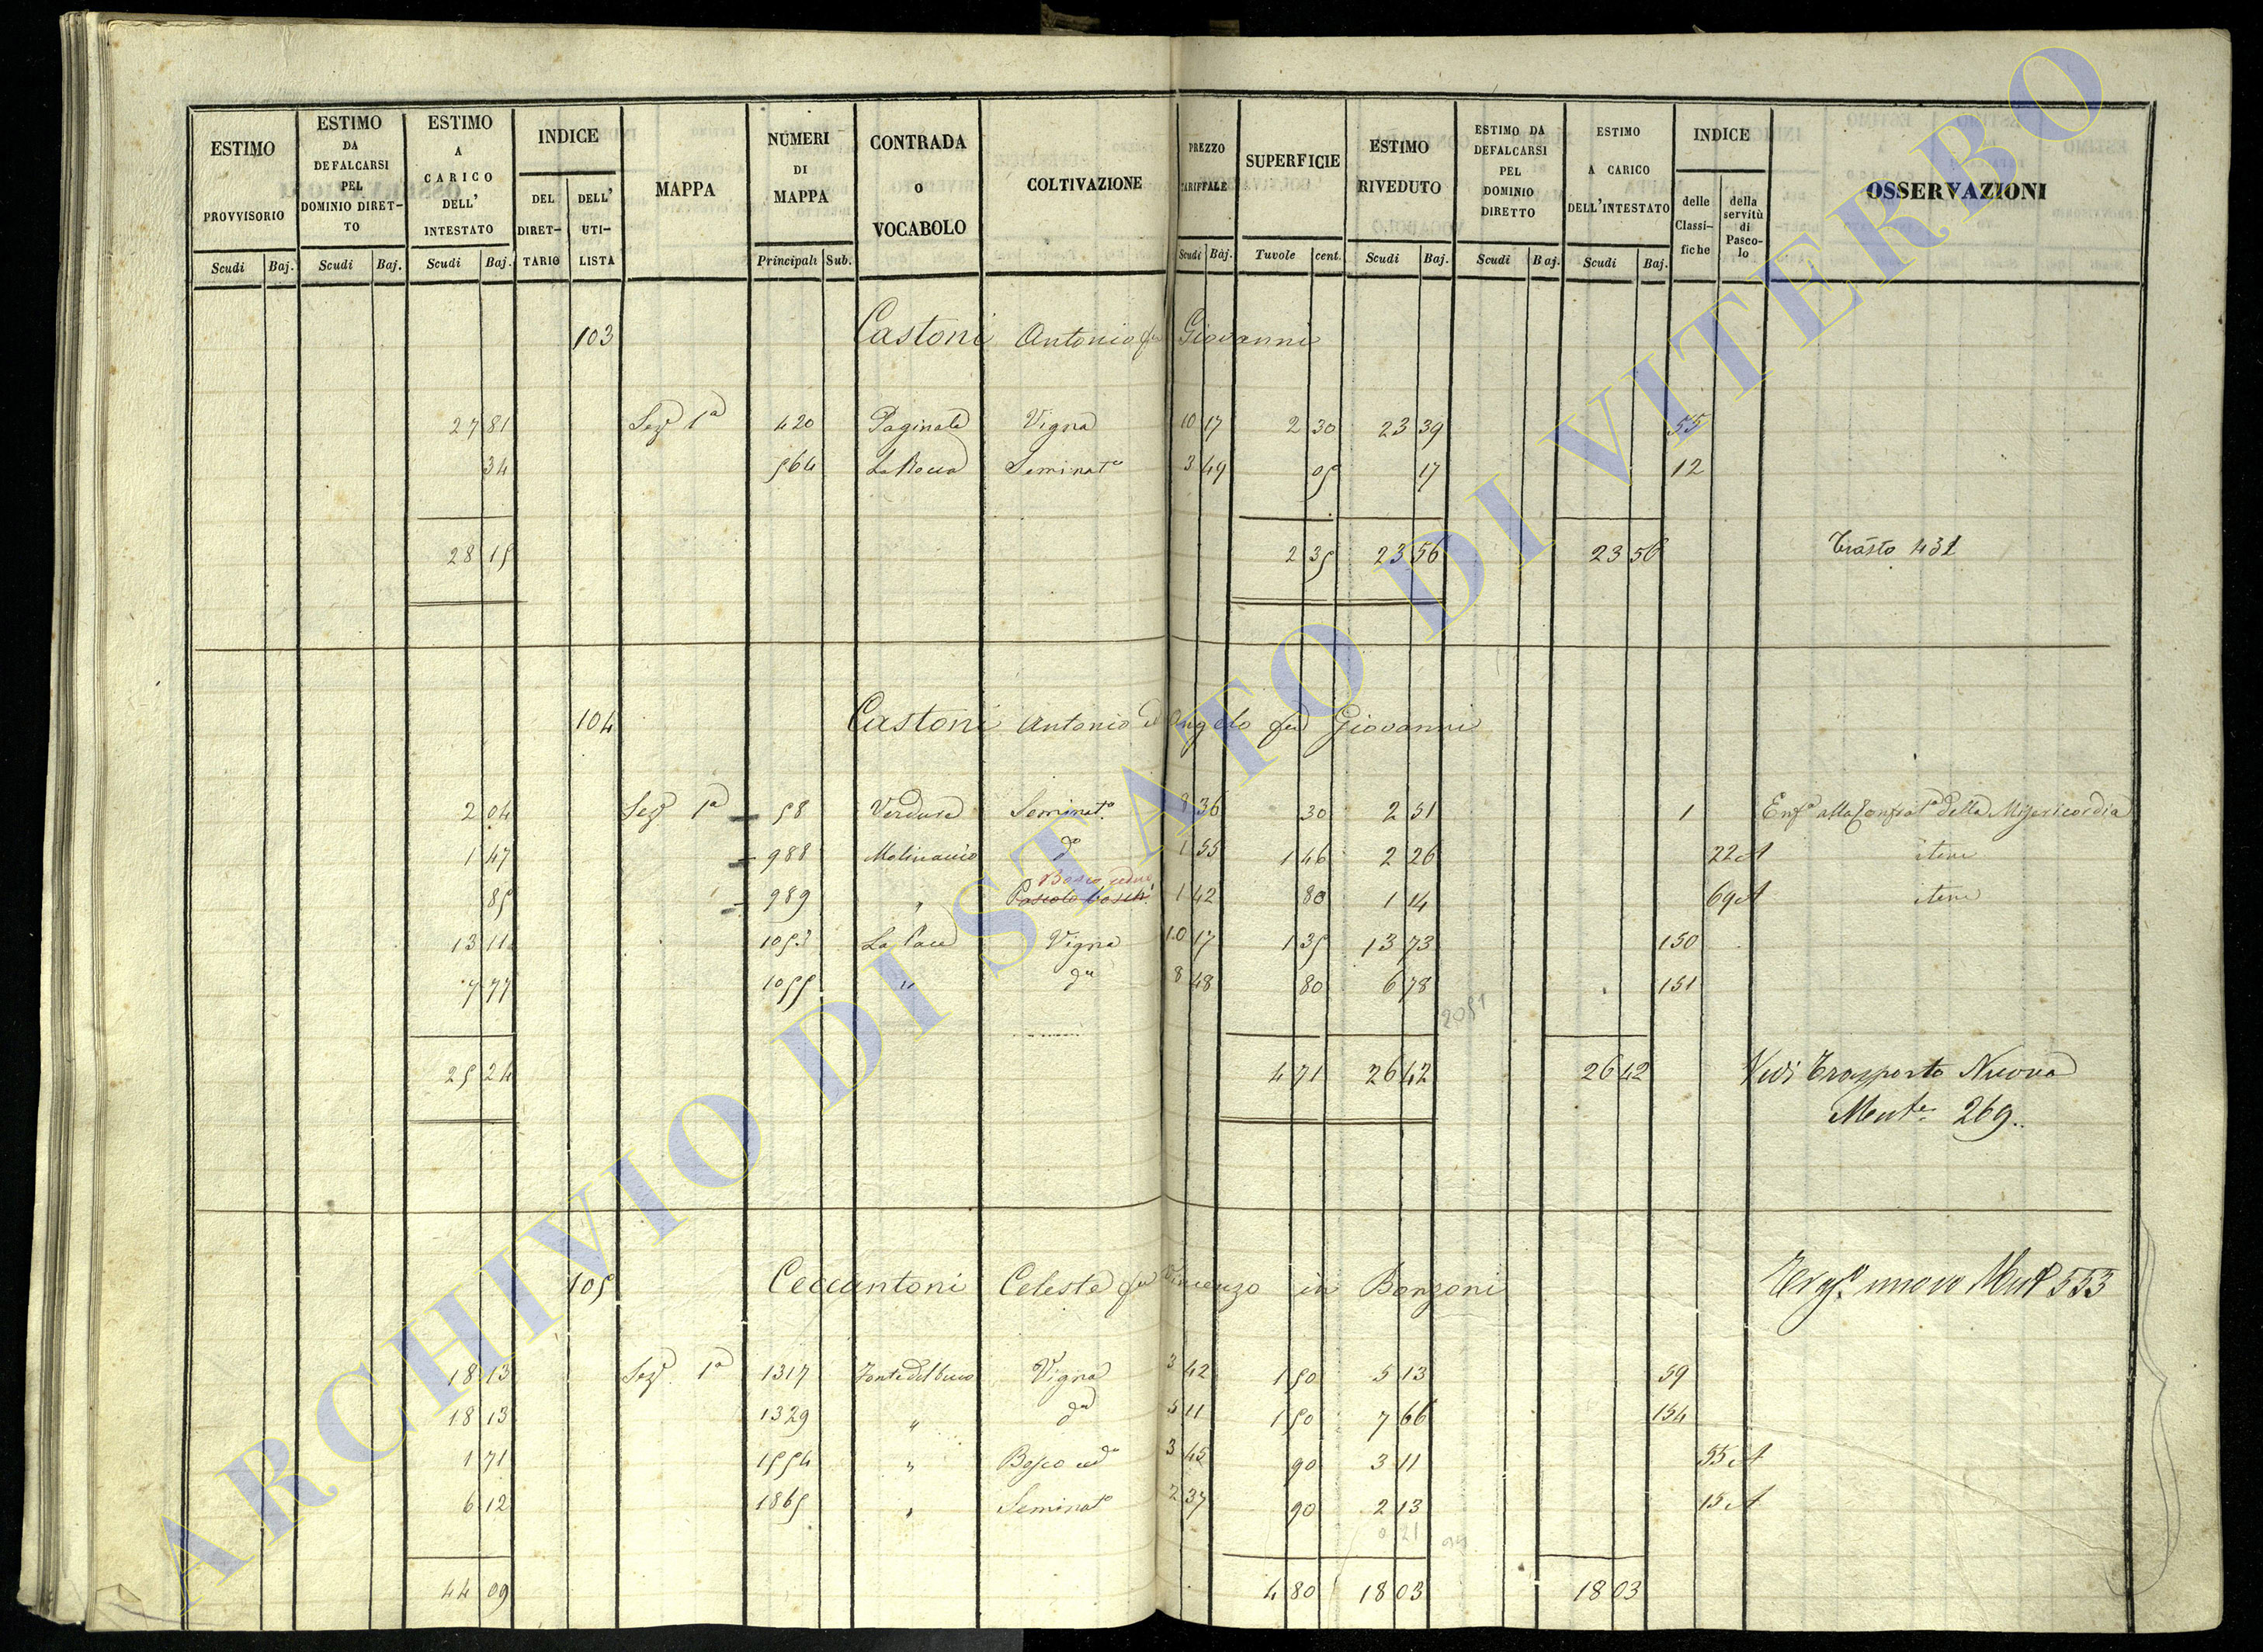 ESTIMO PROVVISORIO Scudi Baj.
ESTIMO DA DEFALCARSI PEL DOMINIO DIRET-TO Scudi Baj.
ESTIMO A CARICO DELL' INTESTATO Scudi Baj.
INDICE DEL DIRET-TARIO DELL' UTI-LISTA
MAPPA
NUMERI DI MAPPA Principali Sub.
CONTRADA o VOCABOLO
COLTIVAZIONE
PREZZO TARIFFALE Scudi Baj.
SUPERFICIE Tavole cent.
ESTIMO RIVEDUTO Scudi Baj.
ESTIMO DA DEFALCARSI PEL DOMINIO DIRETTO Scudi Baj.
ESTIMO A CARICO DELL'INTESTATO Scudi Baj.
INDICE delle Classi-fiche della servitù di Pasco-lo
OSSERVAZIONI
103 Castoni Antonio fu Giovanni
27 81 Sez. 1a 420 Paginata Vigna 10 17 2 30 23 39 55
34 564 La Rocca Seminato 3 49 05 17 12
28 15 2 35 23 56 23 56 431
104 Castoni Antonio ed Angelo fu Giovanni
2 04 Sez. 1a 58 Verdura Seminato 8 36 30 2 51 1 Enf.a alla Confrat.a della Misericordia
1 47 988 Molinaccio do 1 55 1 46 2 26 22 A item
85 989 " Bosco ceduo Pascolo bosch. 1 42 80 1 14 69 A item
13 11 1053 La Pace Vigna 10 17 1 35 13 73 150
7 77 1055 " da 8 48 80 6 78 151
2051
25 24 4 71 26 42 26 42 Vedi Trasporto Nuovo
Ment.e 269
105 Ceccantoni Celeste fu Vincenzo in Bonzoni nuovo 553
18 13 Sez. 1a 1317 Fonte del buco Vigna 3 42 1 50 5 13 59
18 13 1329 " da 5 11 1 50 7 66 154
1 71 1554 " Bosco ced.o 3 45 90 3 11 55 A
6 12 1865 " Seminato 2 37 90 2 13 15 A
0 21
44 09 4 80 18 03 18 03
ARCHIVIO DI STATO DI VITERBO